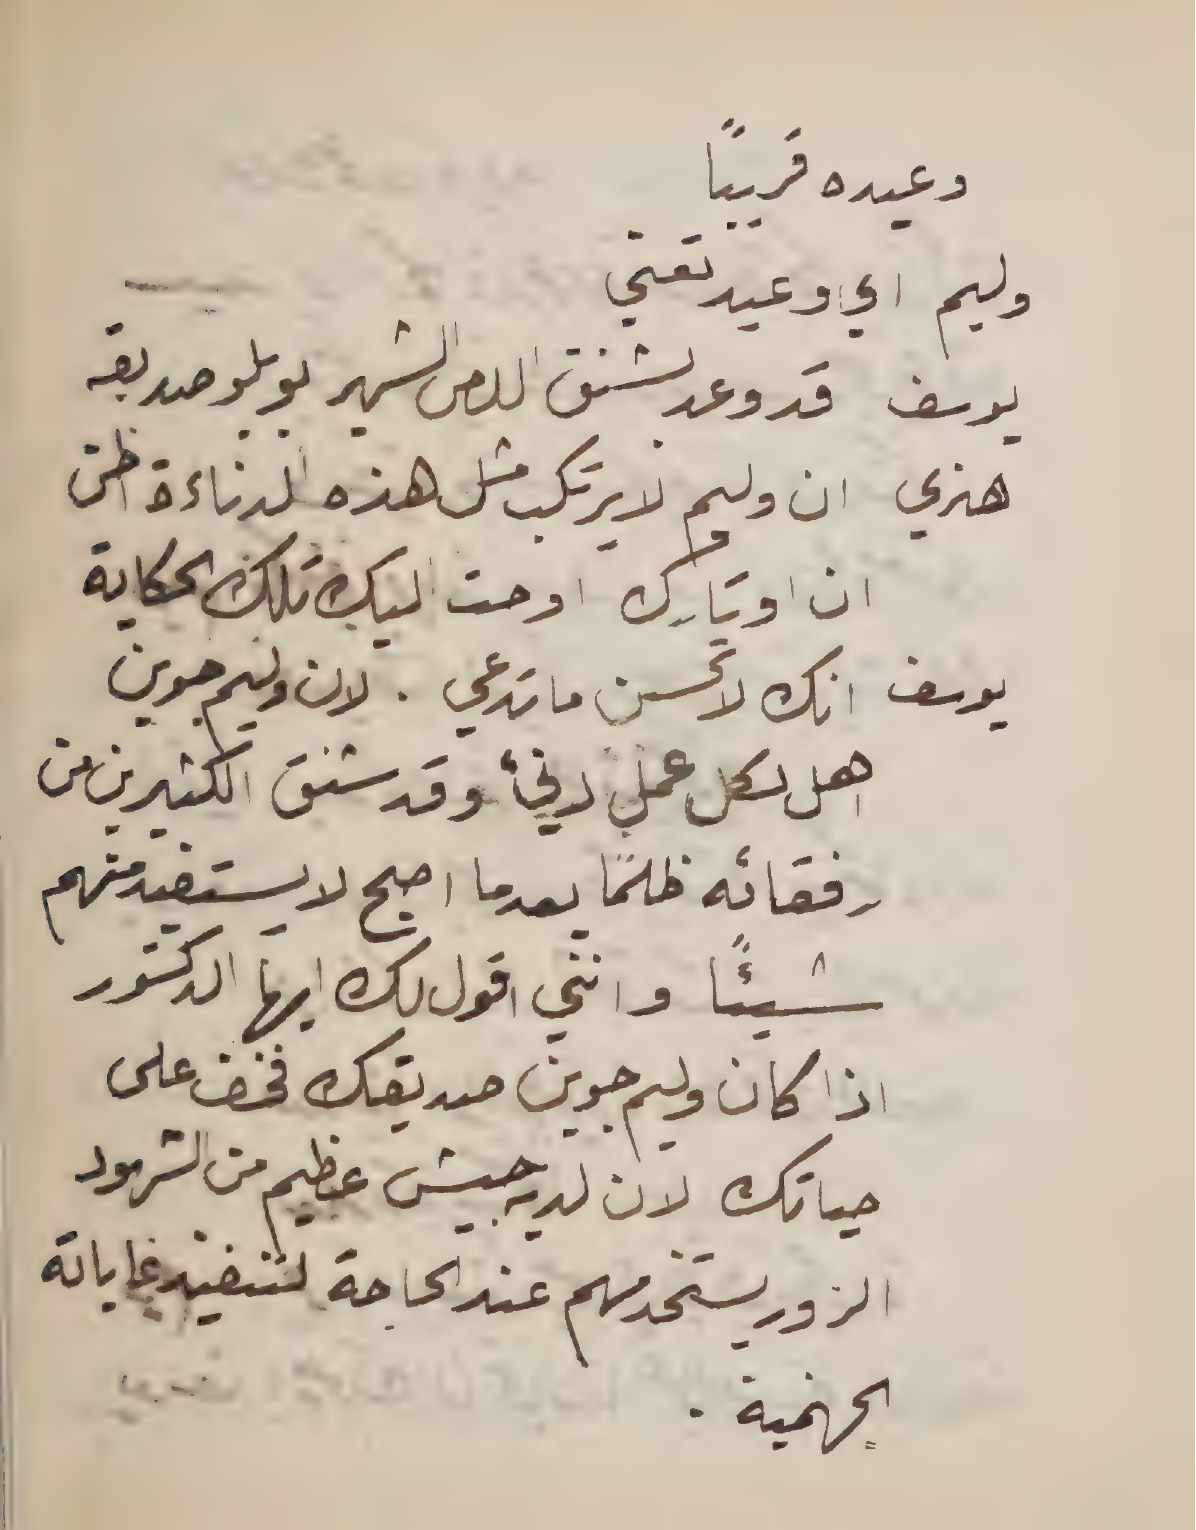 وعيده قريبًا
وليم اي وعيد تعني
يوسف قد وعد لشنق اللص الشهير بوبلو صديقه
هنري ان وليم لا يرتكب مثل هذه الدناءة اظن
ان اوتارك اوحت اليك تلك الحكاية
يوسف انك لا تحسن ما تدعي . لان وليم جوين
اهل لكل عمل دنيء وقد شنق الكثيرين من
رفقائه ظلمًا بعدما اصبح لا يستفيد منهم
شيئًا وانني اقول لك ايها الدكتور
اذا كان وليم جوين صديقك فخف على
حياتك لان لديه جيش عظيم من الشهود
الزور يستخدمهم عند الحاجة لتنفيذ غاياته
الجهنمية .